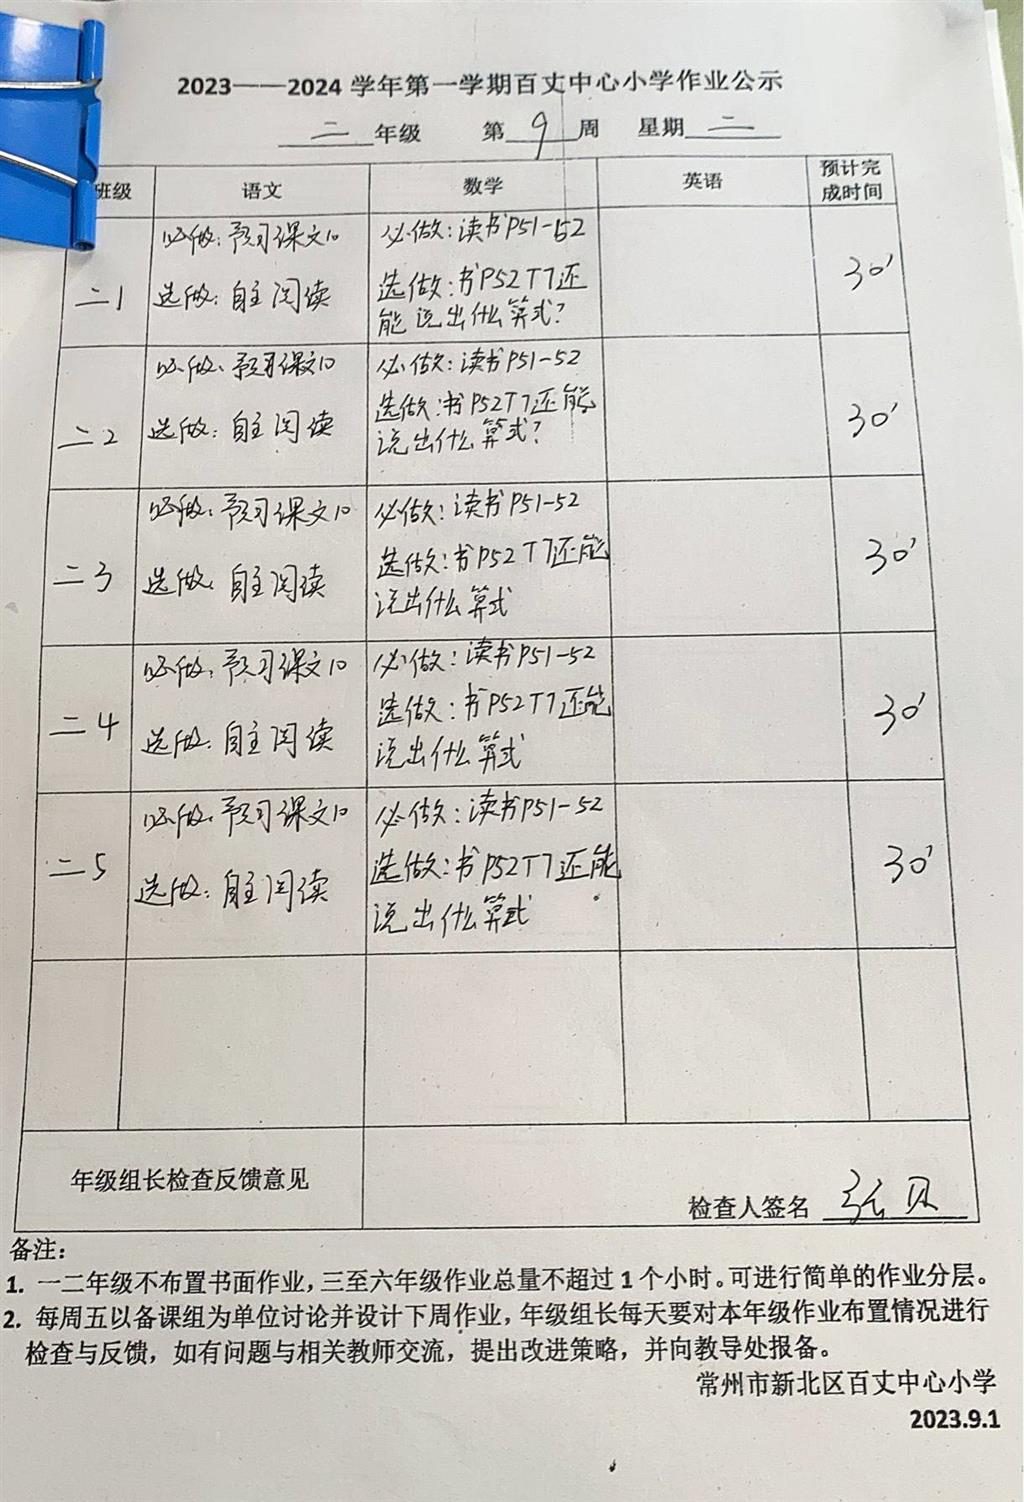 2023——2024 学年第一学期百丈中心小学作业公示
二 年级 第 9 周 星期 二
班级 语文 数学 英语 预计完
成时间
二1
必做：预习课文10
选做：自主阅读
必做：读书P51-52
选做：书P52T7还
能说出什么算式？
30'
二2
必做：预习课文10
选做：自主阅读
必做：读书P51-52
选做：书P52T7还能
说出什么算式？
30'
二3
必做：预习课文10
选做：自主阅读
必做：读书P51-52
选做：书P52T7还能
说出什么算式
30'
二4
必做：预习课文10
选做：自主阅读
必做：读书P51-52
选做：书P52T7还能
说出什么算式
30'
二5
必做：预习课文10
选做：自主阅读
必做：读书P51-52
选做：书P52T7还能
说出什么算式
30'
年级组长检查反馈意见
检查人签名 张贝
备注：
1. 一二年级不布置书面作业，三至六年级作业总量不超过1个小时。可进行简单的作业分层。
2. 每周五以备课组为单位讨论并设计下周作业，年级组长每天要对本年级作业布置情况进行
检查与反馈，如有问题与相关教师交流，提出改进策略，并向教导处报备。
常州市新北区百丈中心小学
2023.9.1